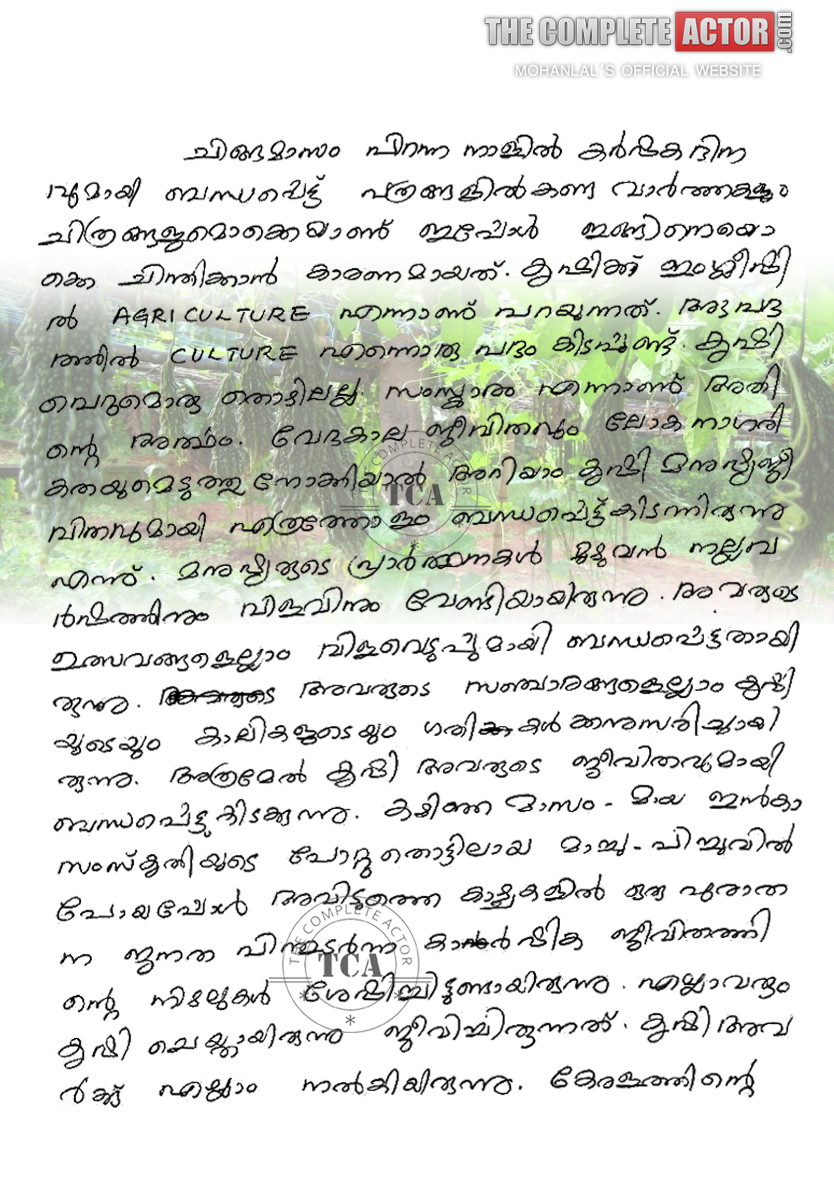 THE COMPLETE ACTOR.com
MOHANLAL'S OFFICIAL WEBSITE
ചിങ്ങമാസം പിറന്ന നാളിൽ കർഷകദിന
വുമായി ബന്ധപ്പെട്ട് പത്രങ്ങളിൽകണ്ട വാർത്തകളും
ചിത്രങ്ങളുമൊക്കെയാണ് ഇപ്പോൾ ഇങ്ങിനെയൊ
ക്കെ ചിന്തിക്കാൻ കാരണമായത്. കൃഷിക്ക് ഇംഗ്ലീഷി
ൽ AGRICULTURE എന്നാണ് പറയുന്നത്. ആ പദ
ത്തിൽ CULTURE എന്നൊരു പദം കിടപ്പുണ്ട്. കൃഷി
വെറുമൊരു തൊഴിലല്ല സംസ്ക്കാരം എന്നാണ് അതി
ന്റെ അർത്ഥം. വേദകാല ജീവിതവും ലോകനാഗരി
കതയുമെടുത്തു നോക്കിയാൽ അറിയാം കൃഷി മനുഷ്യജീ
വിതവുമായി എത്രത്തോളം ബന്ധപ്പെട്ട് കിടന്നിരുന്നു
എന്ന്. മനുഷ്യരുടെ പ്രാർത്ഥനകൾ മുഴുവൻ നല്ലവ
ർഷത്തിനും വിളവിനും വേണ്ടിയായിരുന്നു. അവരുടെ
ഉത്സവങ്ങളെല്ലാം വിളവെടുപ്പുമായി ബന്ധപ്പെട്ടതായി
രുന്നു. അവരുടെ സഞ്ചാരങ്ങളെല്ലാം കൃഷി
യുടെയും കാലികളുടെയും ഗതികൾക്കനുസരിച്ചായി
രുന്നു. അത്രമേൽ കൃഷി അവരുടെ ജീവിതവുമായി
ബന്ധപ്പെട്ടു കിടക്കുന്നു. കഴിഞ്ഞ മാസം - മായ ഇൻകാ
സംസ്കൃതിയുടെ പോറ്റുതൊട്ടിലായ മാച്ചു-പിച്ചുവിൽ
പോയപ്പോൾ അവിടുത്തെ കാഴ്ചകളിൽ ഒരു പുരാത
ന ജനത പിന്തുടർന്ന കാർഷിക ജീവിതത്തി
ന്റെ നിഴലുകൾ ശേഷിച്ചിട്ടുണ്ടായിരുന്നു. എല്ലാവരും
കൃഷി ചെയ്തായിരുന്നു ജീവിച്ചിരുന്നത്. കൃഷി അവ
ർക്ക് എല്ലാം നൽകിയിരുന്നു. കേരളത്തിന്റെ
THE COMPLETE ACTOR
TCA
THE COMPLETE ACTOR
TCA